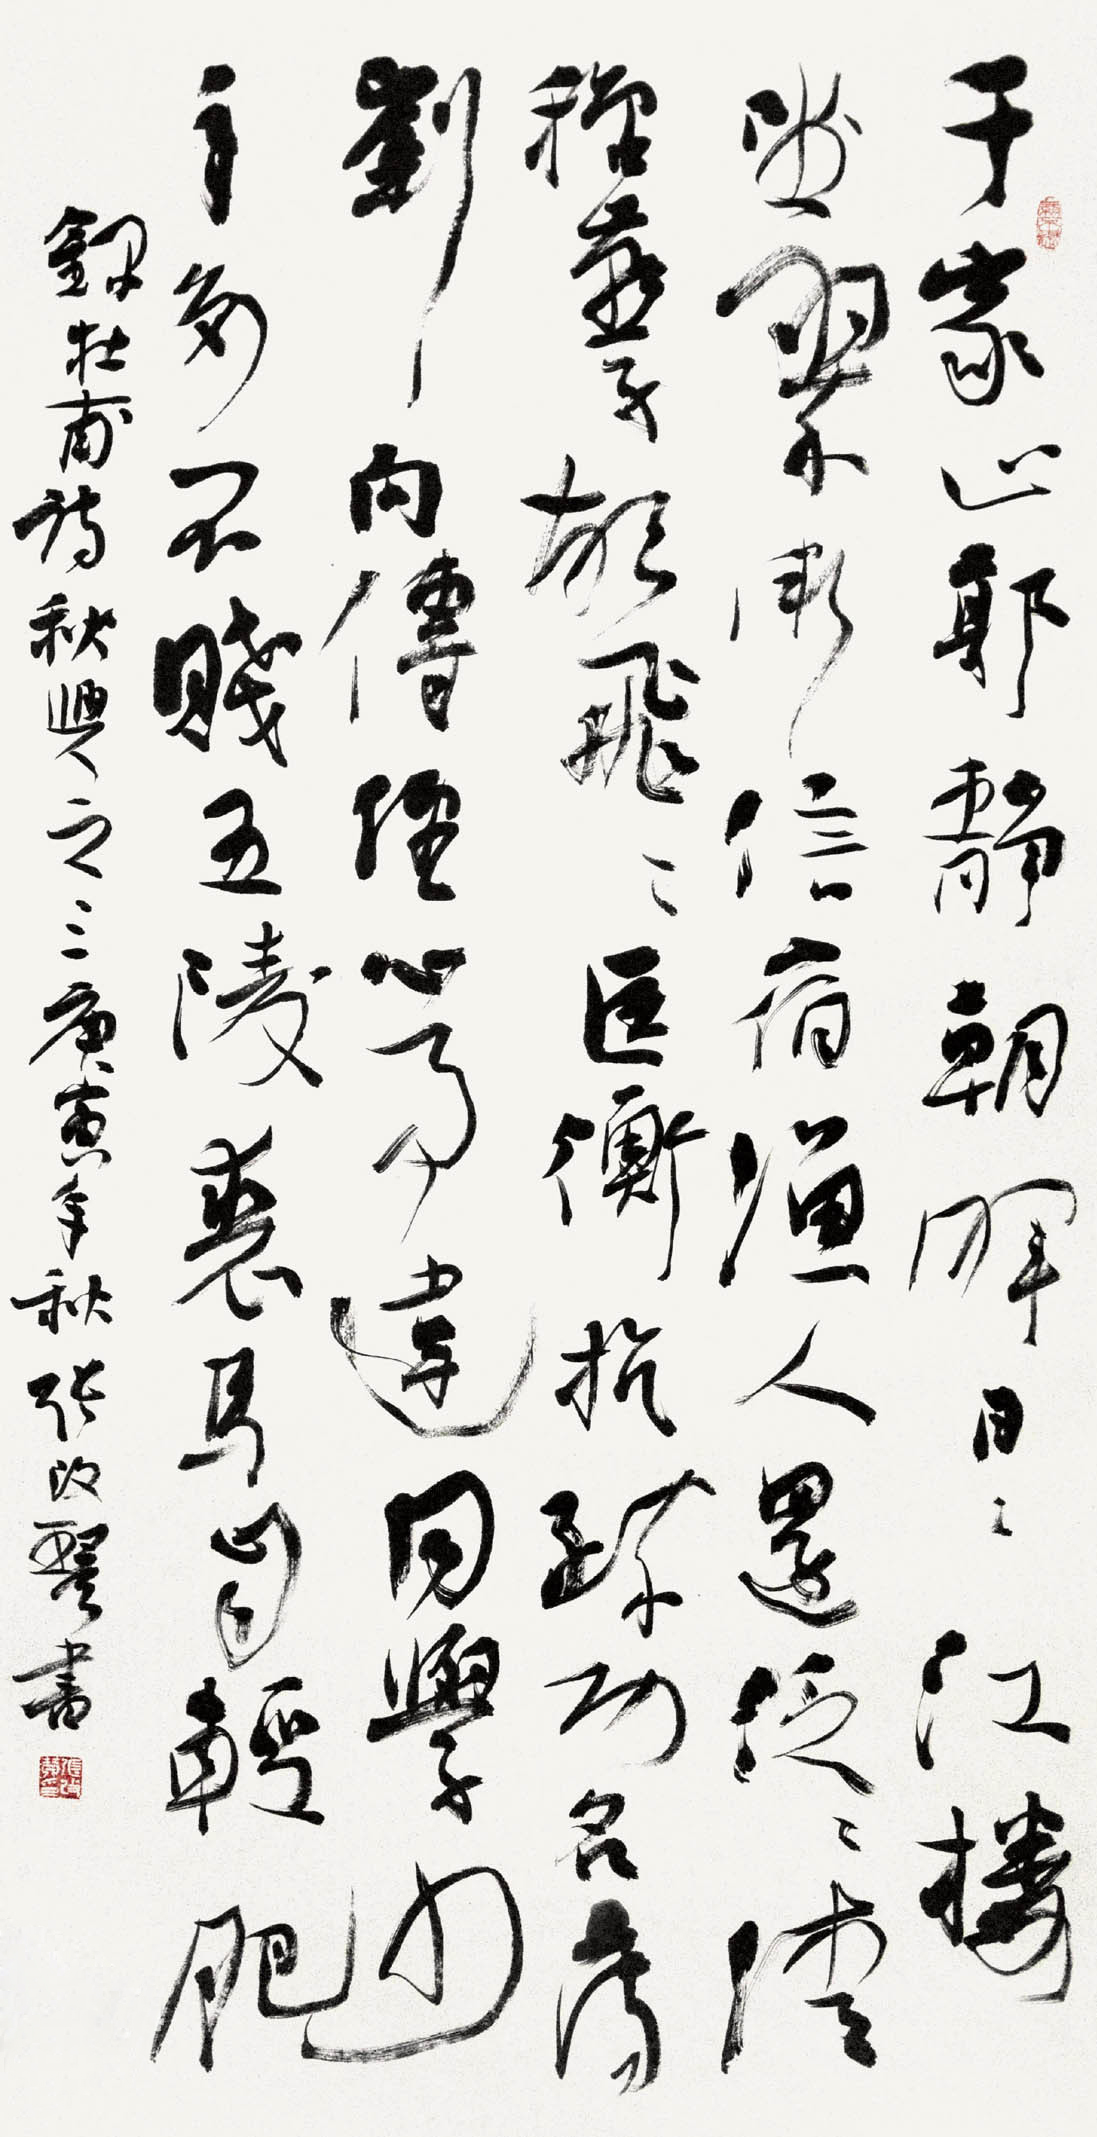 千家山郭靜朝暉日々江樓
坐翠微信宿漁人還泛々清
秋燕子故飛々匡衡抗疏功名薄
劉向傳經心事違同學少
年多不賤五陵裘馬自輕肥
錄杜甫詩秋興之三庚寅年秋張改琴書